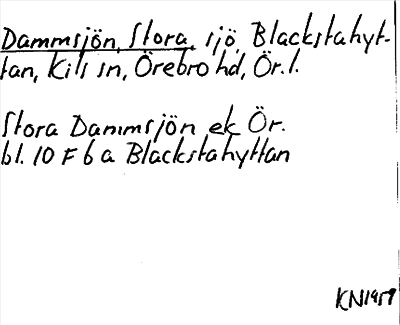 Dammsjön, Stora, sjö, Blackstahyt-
tan, Kils sn, Örebro hd, Ör. l.
Stora Dammsjön ek Ör.
bl. 10 F 6 a Blackstahyttan
KN 1959